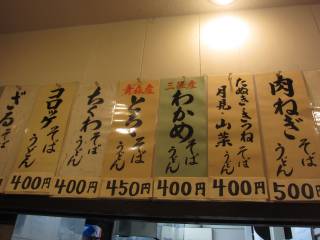 肉ねぎ そば うどん
500円
たぬき・きつね
月見・山菜 そば うどん
400円
三陸産
わかめ そば うどん
400円
青森産
とろろ そば うどん
450円
ちくわ そば うどん
400円
コロッケ そば うどん
400円
ざる そば うどん